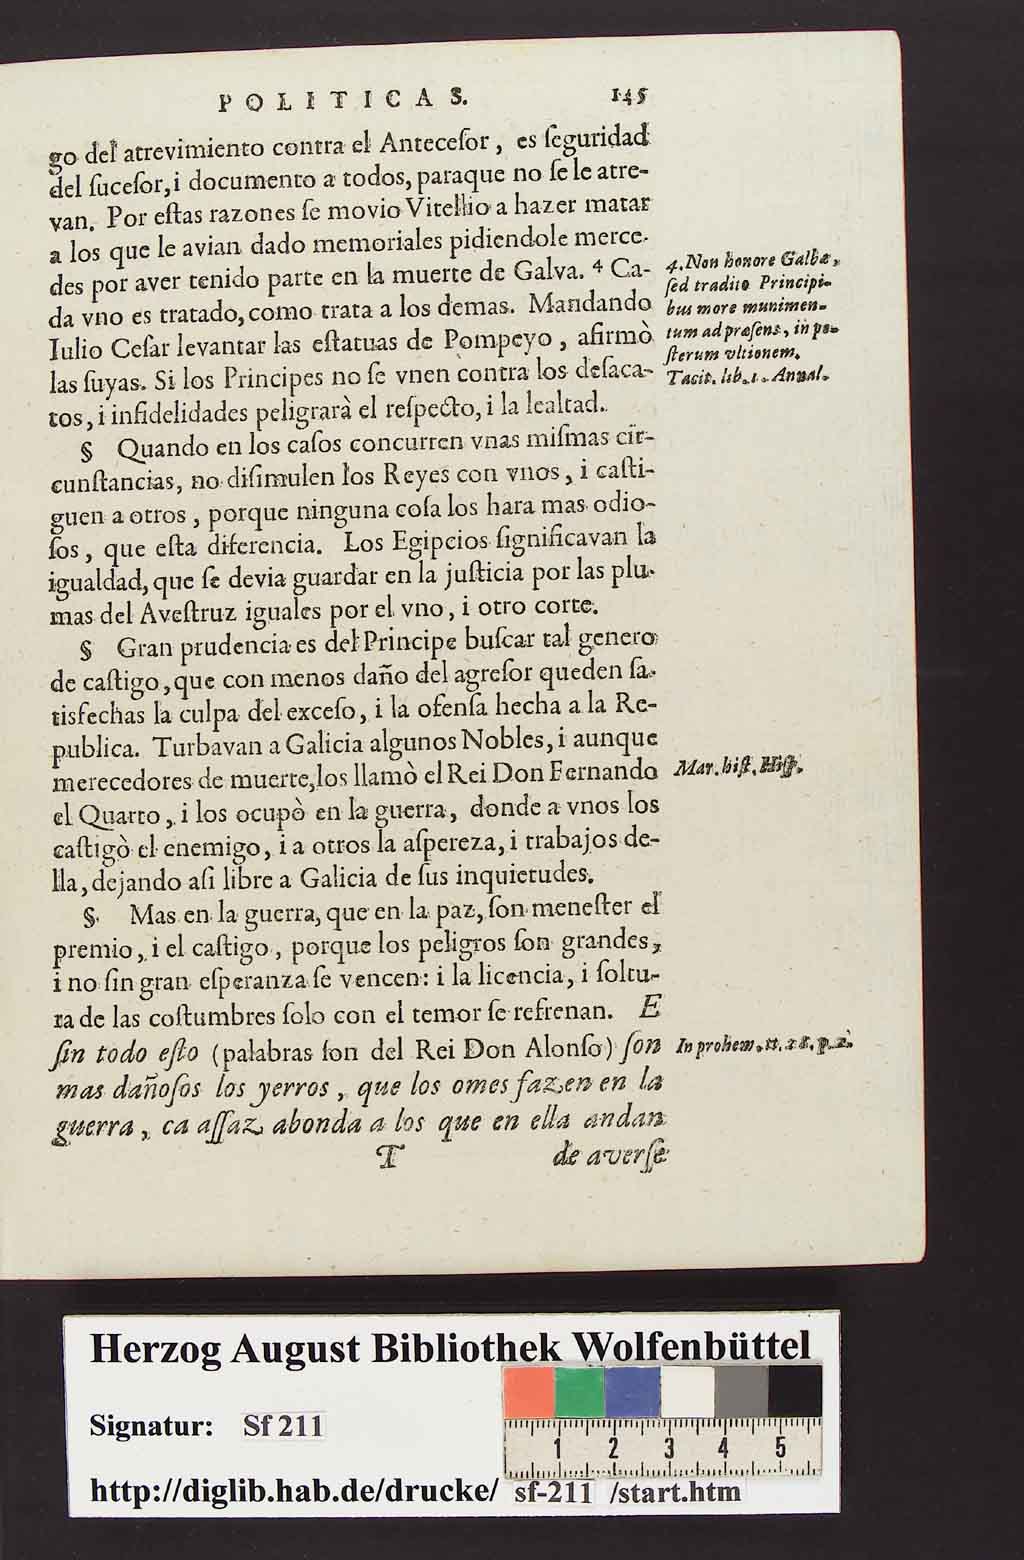 POLITICAS. 145
go del atrevimiento contra el Anteceſor, es ſeguridad
del ſuceſor, i documento a todos, paraque no ſe le atre-
van. Por eſtas razones ſe movio Vitellio a hazer matar
a los que le avian dado memoriales pidiendole merce-
des por aver tenido parte en la muerte de Galva. 4 Ca-
da vno es tratado, como trata a los demas. Mandando
Iulio Ceſar levantar las eſtatuas de Pompeyo, afirmò
las ſuyas. Si los Principes no ſe vnen contra los deſaca-
tos, i infidelidades peligrarà el reſpecto, i la lealtad.
4. Non honore Galbæ,
ſed tradito Principi-
bus more munimen-
tum ad præſens, in po-
ſterum vltionem.
Tacit. lib. 1. Annal.
§ Quando en los caſos concurren vnas miſmas cir-
cunſtancias, no diſimulen los Reyes con vnos, i caſti-
guen a otros, porque ninguna coſa los hara mas odio-
ſos, que eſta diferencia. Los Egipcios ſignificavan la
igualdad, que ſe devia guardar en la juſticia por las plu-
mas del Aveſtruz iguales por el vno, i otro corte.
§ Gran prudencia es del Principe buſcar tal genero
de caſtigo, que con menos daño del agreſor queden ſa-
tisfechas la culpa del exceſo, i la ofenſa hecha a la Re-
publica. Turbavan a Galicia algunos Nobles, i aunque
merecedores de muerte, los llamò el Rei Don Fernando
Mar. hiſt. Hiſp.
el Quarto, i los ocupò en la guerra, donde a vnos los
caſtigò el enemigo, i a otros la aſpereza, i trabajos de-
lla, dejando aſi libre a Galicia de ſus inquietudes.
§. Mas en la guerra, que en la paz, ſon meneſter el
premio, i el caſtigo, porque los peligros ſon grandes,
i no ſin gran eſperanza ſe vencen: i la licencia, i ſoltu-
ra de las coſtumbres ſolo con el temor ſe refrenan. E
ſin todo eſto (palabras ſon del Rei Don Alonſo) ſon
In prohem. tt. 28. p. 2.
mas dañoſos los yerros, que los omes fazen en la
guerra, ca aſſaz abonda a los que en ella andan
T de averſe
Herzog August Bibliothek Wolfenbüttel
Signatur: Sf 211
1 2 3 4 5
http://diglib.hab.de/drucke/ sf-211 /start.htm